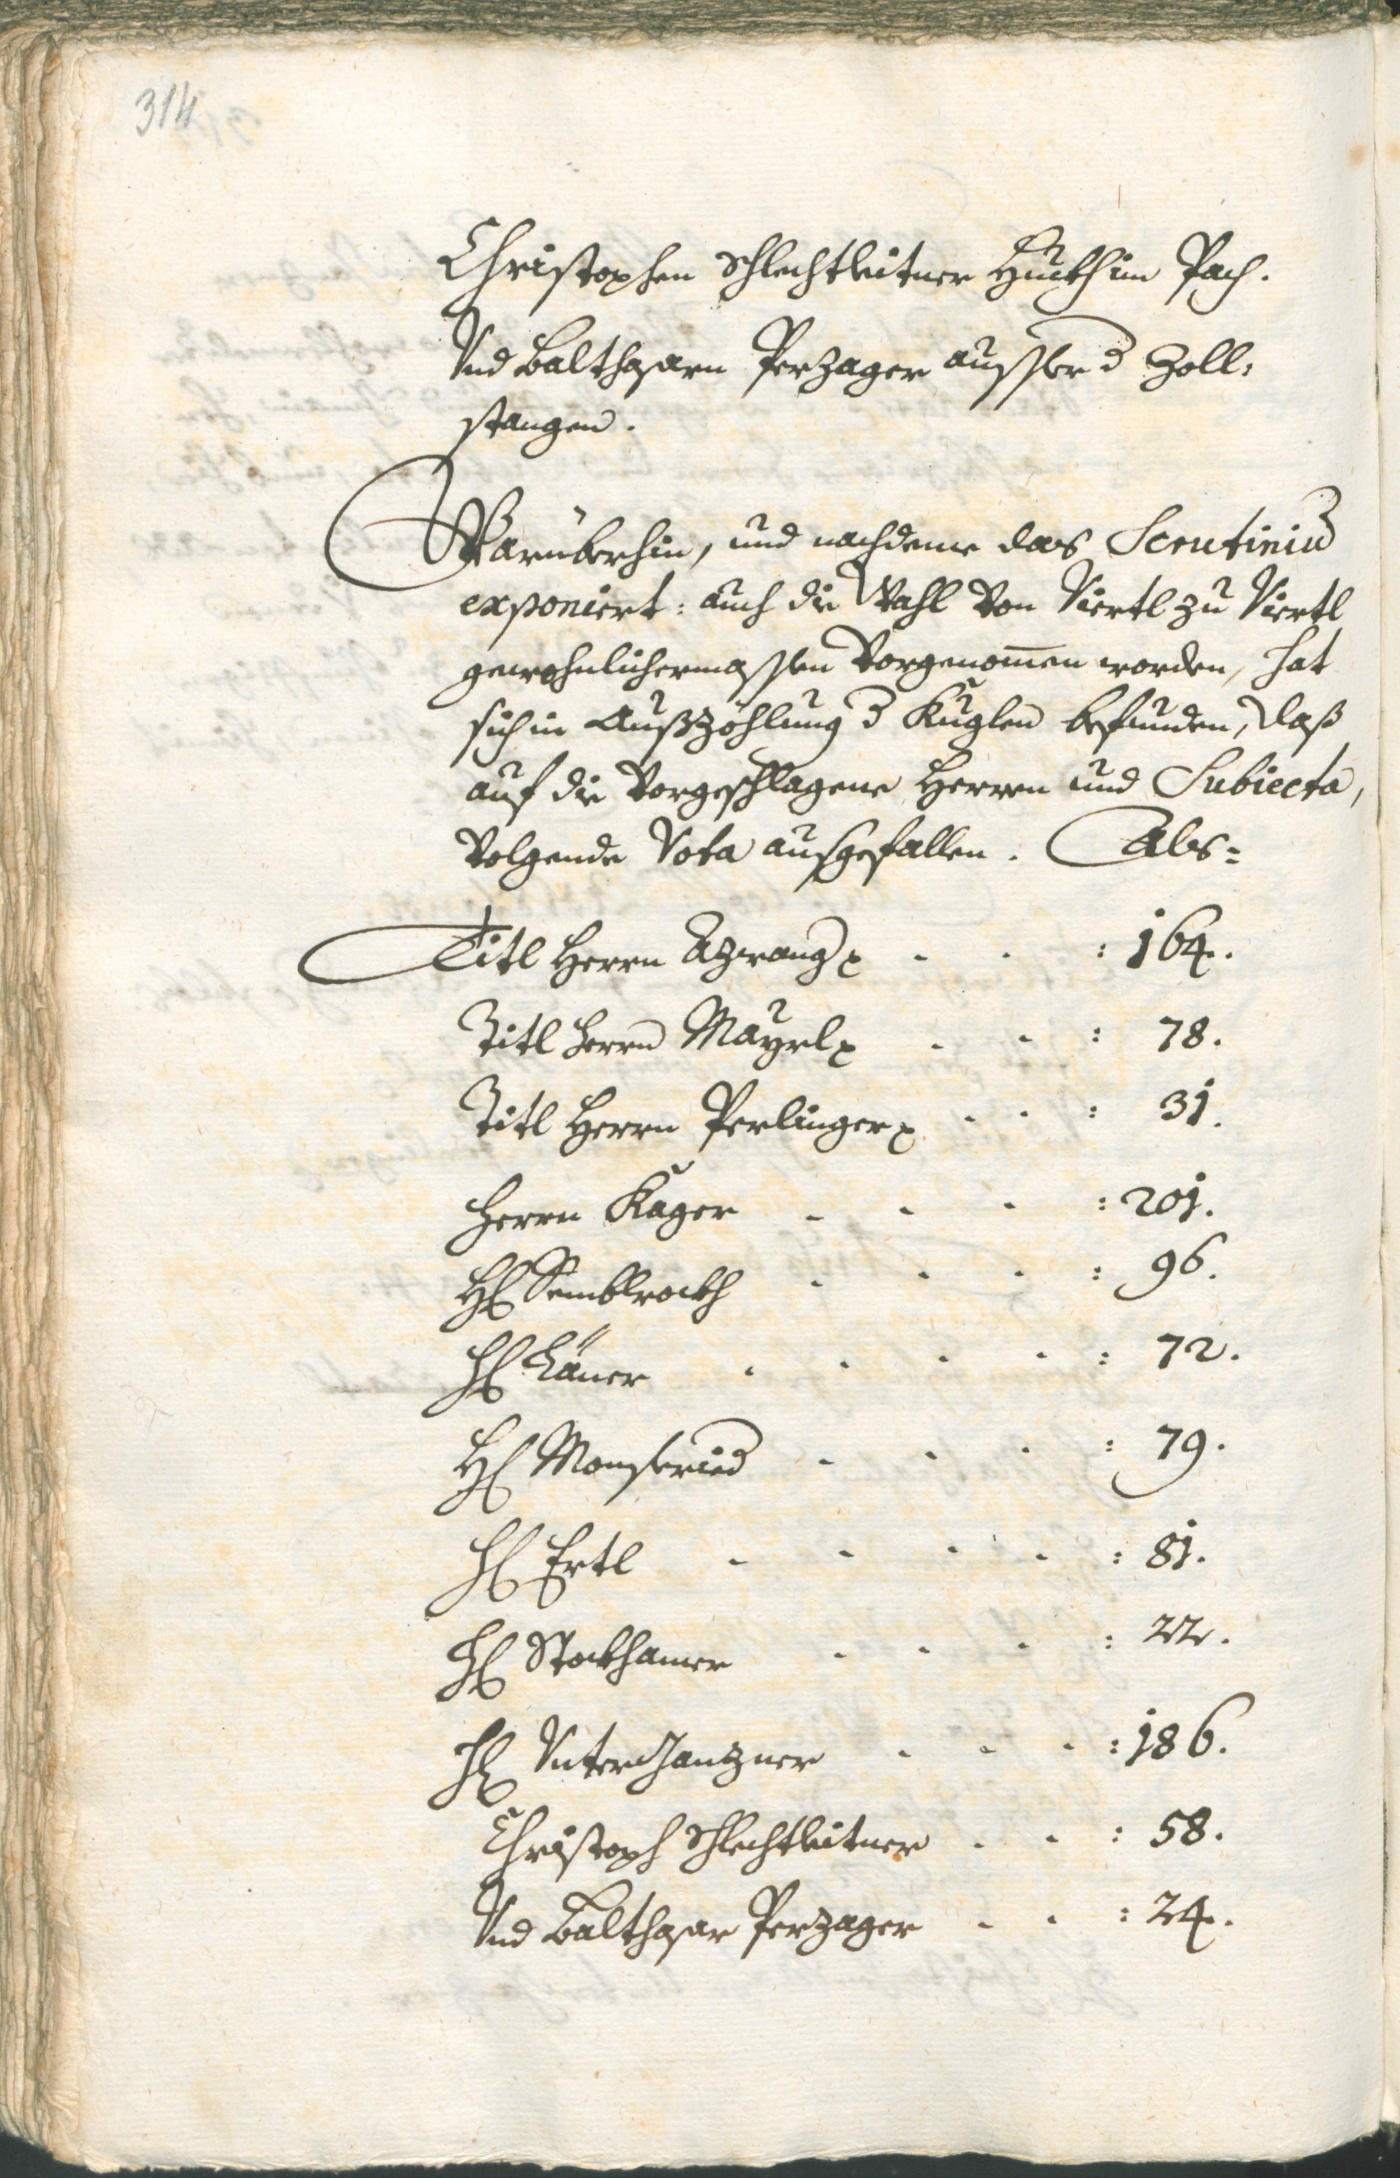 314
Christophen Schlechtleitner Huebh im Pach.
Vnd Balthasarn Perzager ausser d Zoll:
stangen.
Warüberhin, und nachdeme das Scrutiniu
exponiert: auch die Wahl Von Viertl zu Viertl
gewohnlichermassen Vorgenomen worden, hat
sich in Außzöhlung d Kuglen befunden, daß
auf die Vorgeschlagene Herren und Subiecta,
Volgende Vota ausgefallen. Als=
Titl Herrn Azwang : 164.
Titl Herrn Mayrl : 78.
Titl Herrn Perlinger : 31.
Herrn Kager : 201.
H Semblrockh : 96.
H Läner : 72.
H Monsfried : 79.
H Ertl : 81.
H Stockhamer : 22.
H Vnterhanzner : 186.
Christoph Schlechtleitner : 58.
Vnd Balthasar Perzager : 24.